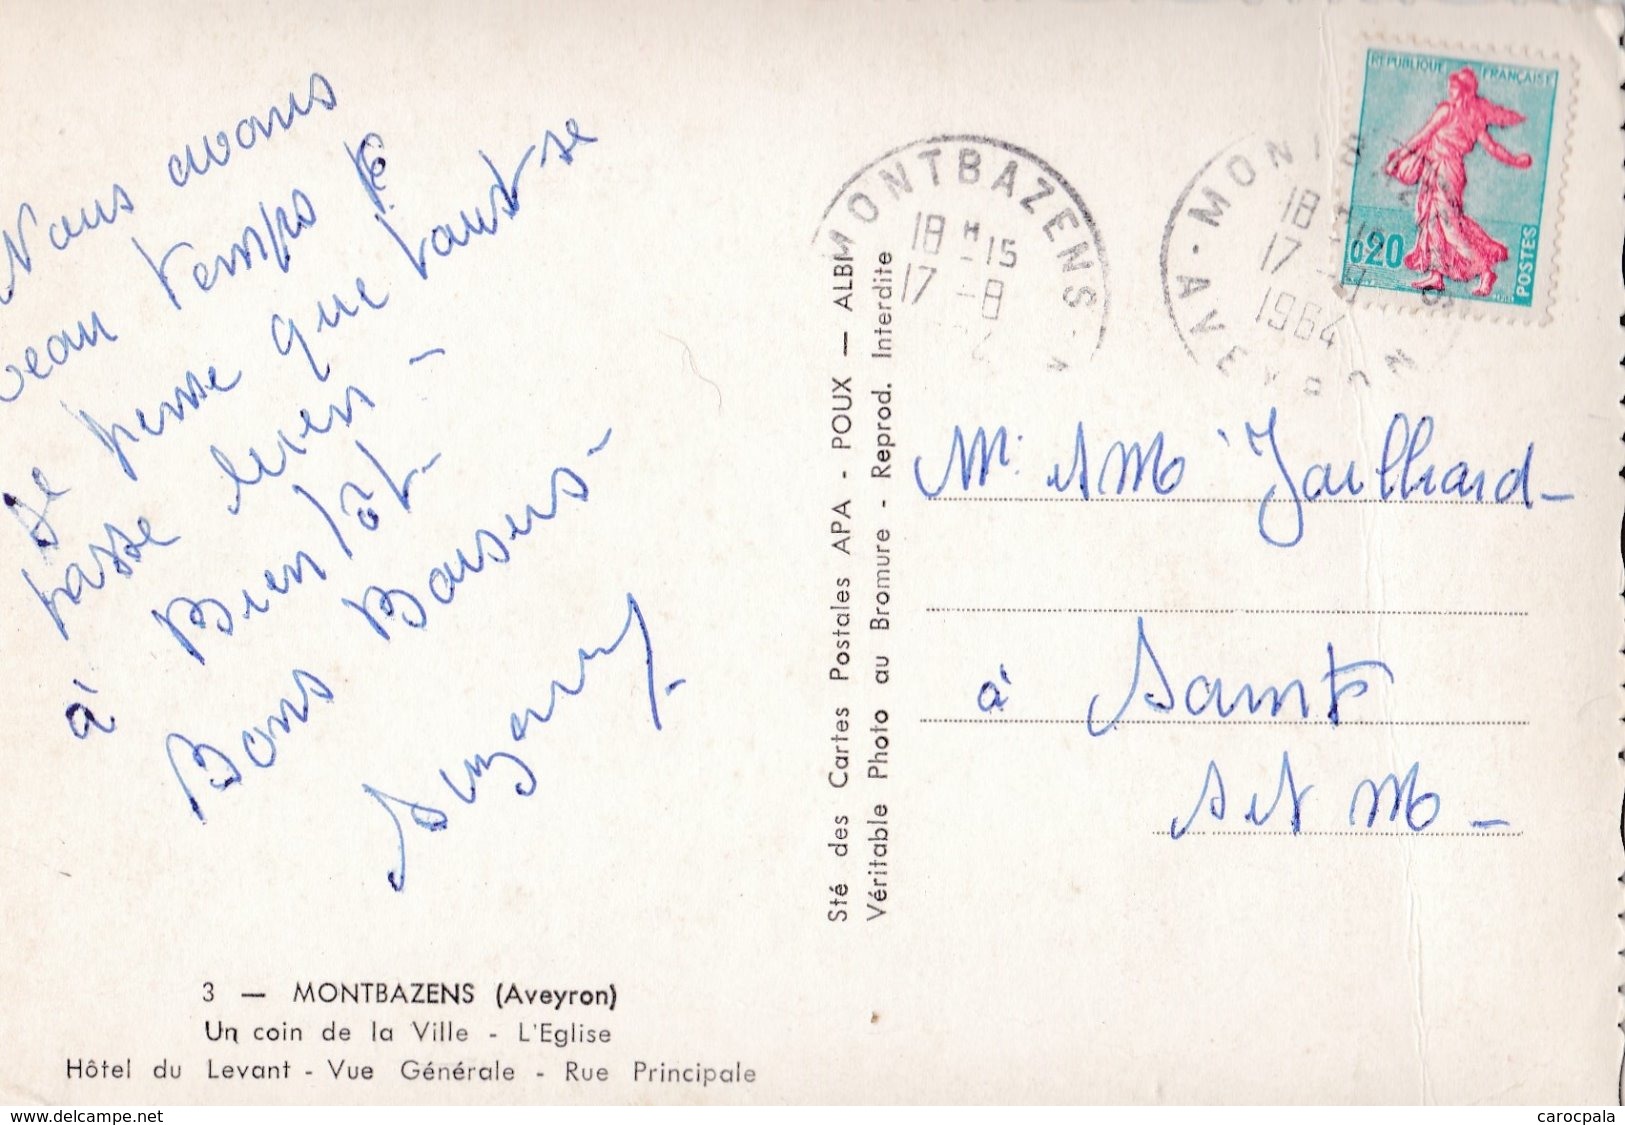 Nous avons
beau temps
Je pense que tout se
passe bien -
à Bientôt -
Bons Baisers -
Suzanne
3 — MONTBAZENS (Aveyron)
Un coin de la Ville - L'Eglise
Hôtel du Levant - Vue Générale - Rue Principale
Sté des Cartes Postales APA - POUX — ALBI
Véritable Photo au Bromure - Reprod. Interdite
MONTBAZENS
18 H 15
17 -8
MONTBAZENS
18 H 15
17 -8
1964
AVEYRON
REPUBLIQUE FRANÇAISE
0,20
POSTES
Mr et Mme Jailhard -
à Saints
S et M -
www.delcampe.net
carocpala